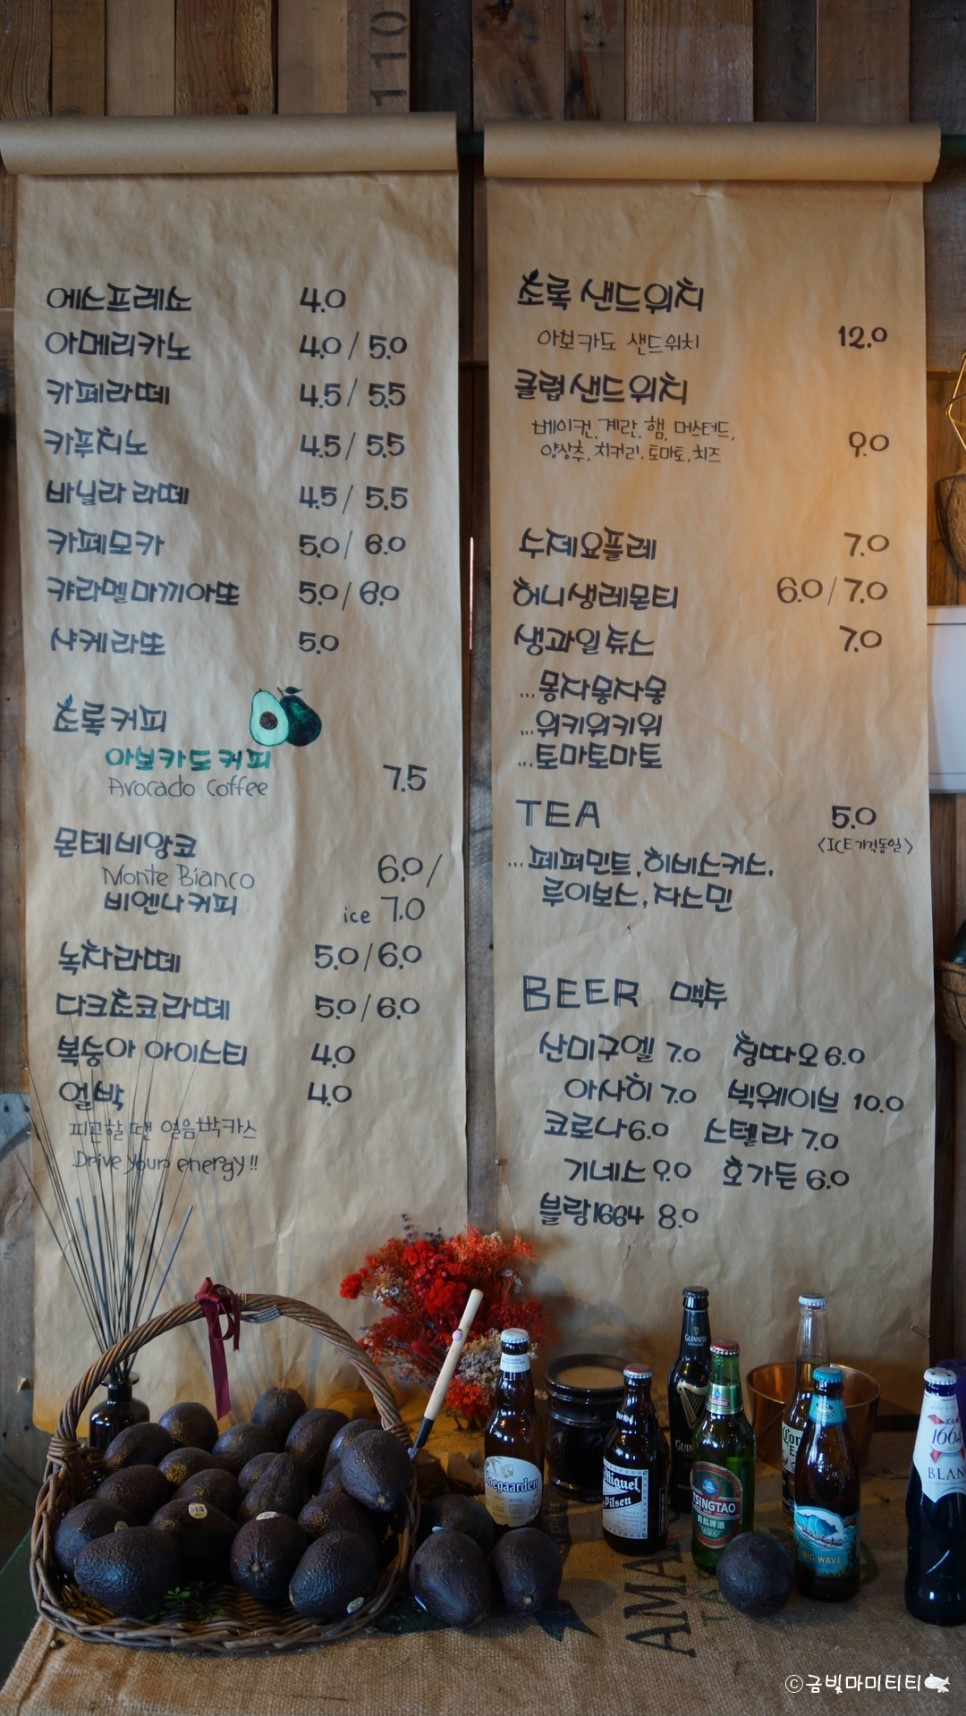 110
에스프레소 4.0
아메리카노 4.0 / 5.0
카페라떼 4.5 / 5.5
카푸치노 4.5 / 5.5
바닐라 라떼 4.5 / 5.5
카페모카 5.0 / 6.0
캬라멜마끼아또 5.0 / 6.0
샤케라또 5.0
초록커피
아보카도커피
Avocado Coffee 7.5
몬테비앙코
Monte Bianco 6.0 /
비엔나커피 ice 7.0
녹차라떼 5.0 / 6.0
다크초코라떼 5.0 / 6.0
복숭아 아이스티 4.0
얼박 4.0
피곤할 땐 얼음박카스
Drive your energy!!
초록 샌드위치
아보카도 샌드위치 12.0
클럽샌드위치
베이컨, 계란, 햄, 머스터드,
양상추, 치커리, 토마토, 치즈 9.0
수제요플레 7.0
허니생레몬티 6.0 / 7.0
생과일쥬스 7.0
...몽자몽자몽
...위키위키위
...토마토마토
TEA 5.0
<ICE 가격동일>
...페퍼민트, 히비스커스,
루이보스, 자스민
BEER 맥투
산미구엘 7.0 칭따오 6.0
아사히 7.0 빅웨이브 10.0
코로나 6.0 스텔라 7.0
기네스 9.0 호가든 6.0
블랑1664 8.0
GUINNESS
Hoegaarden
Miguel
Pilsen
TSINGTAO
BIG WAVE
1664
BLAN
AMA
ⓒ금빛마미티티